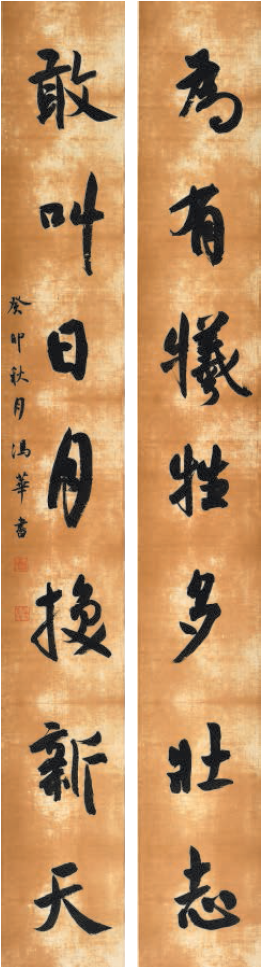 為有犧牲多壯志
敢叫日月換新天
癸卯秋月馮華書